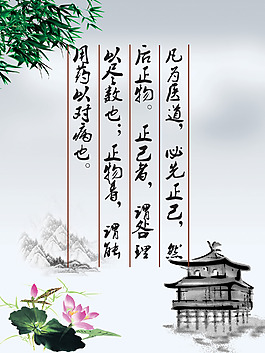 凡为医道，必先正己，然
后正物。正己者，谓理
以尽数也；正物者，谓能
用药以对病也。